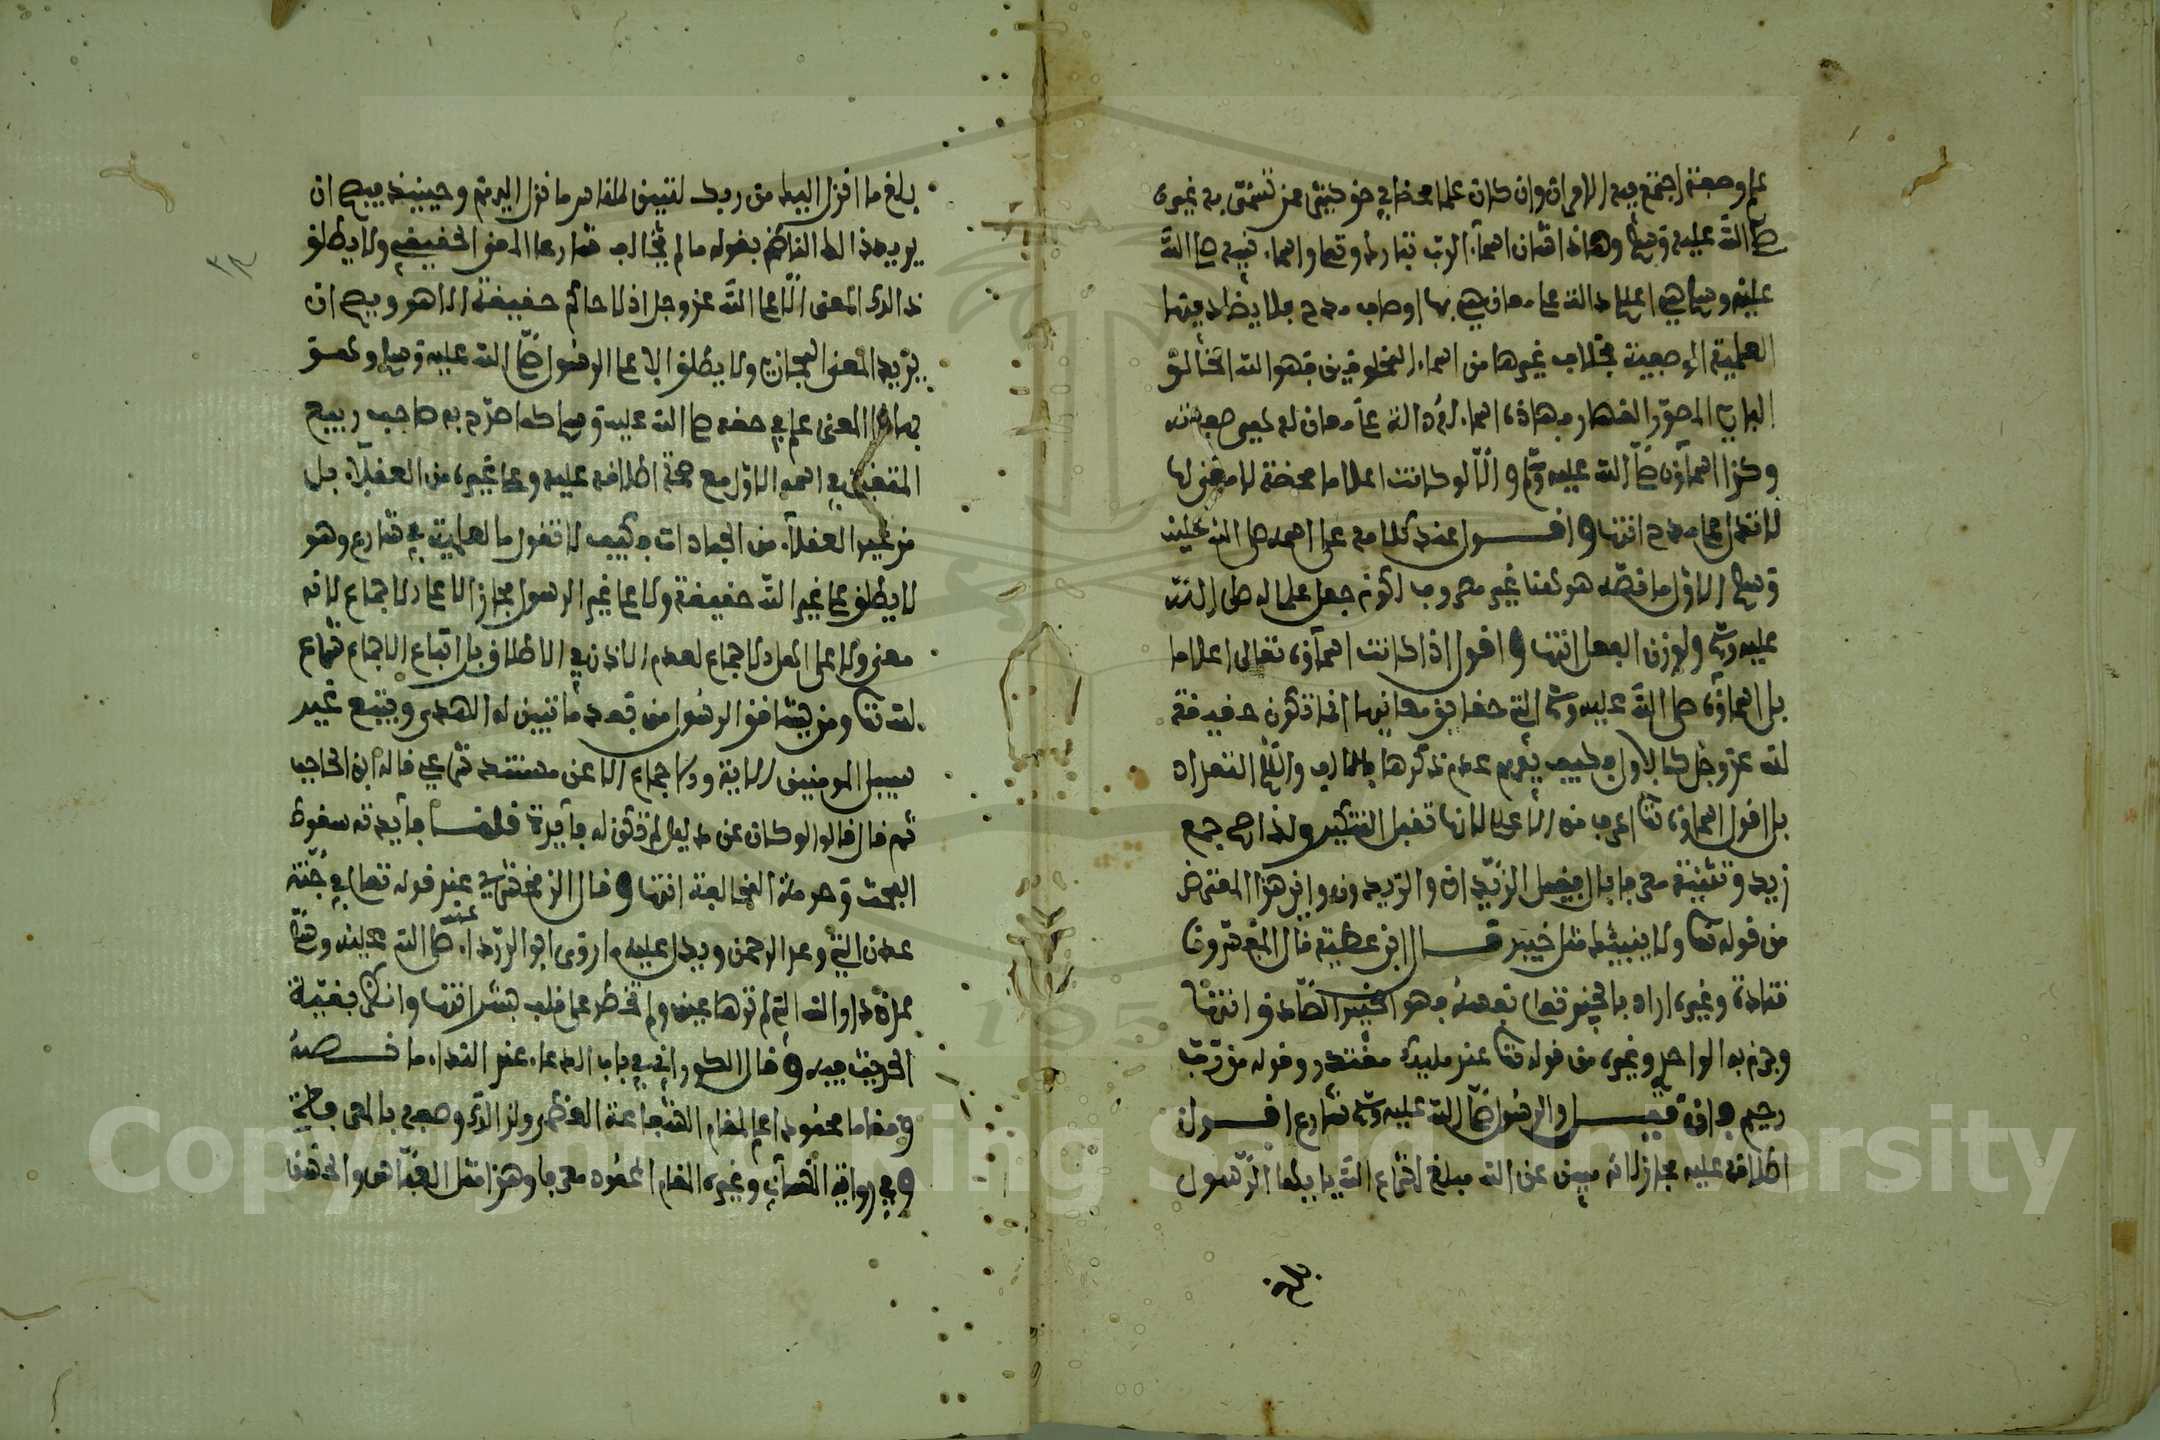 علم وصفة اجتمع فيه الامران وان كان علما محضا في حق كل من تسمى به غيره
صلى الله عليه وسلم وهاذا شان اسماء الرب تبارك وتعلى واسماء نبيه صلى الله
عليه وسلم هي اعلام دالة على معان هي بها اوصاف مدح فلا يضاد فيها
العلمية الوصفية بخلاف غيرها من اسماء المخلوقين فهو الله الخالق
البارئ المصور القهار فهاذه اسماء له دالة على معان له هي صفته
وكذا اسماؤه صلى الله عليه وسلم والا لو كانت اعلاما محضة لا معنى لها
لا تدل على مدح انتها واقول عند كلامه على احمد صلى الله عليه
وسلم الاول ما نصه هو لفظا غير مصروف لكونه جعل علما له صلى الله
عليه وسلم ولوزن الفعل انتها واقول اذا كانت اسماؤه تعالى اعلاما
بل اسماؤه صلى الله عليه وسلم التي حقايق معانيها انما تكون حقيقة
لله عز وجل كالاول فكيف يفهم عدم ذكرها بالالف واللام التعداد
بل اقول اسماؤه تعا اعرف من الاعلام لانها تقبل التنكير ولذا صح جمع
زيد وتثنية معرفا بال فقيل الزيدان والزيدون واين هذا المقتضى
من قوله تعا ولا ينبئك مثل خبير قال ابن عطية قال المفسرون
قتادة وغيره اراد بالخبير تعلى نفسه فهو الخبير الصادق انتها
وجزم به الواحدي وغيره من قوله تعا عند مليك مقتدر وقوله من رب
رحيم فان قيل والرسول صلى الله عليه وسلم شارع اقول
اطلاقه عليه مجاز لانه مبين عن الله مبلغ لشرع الله يايها الرسول
بلغ
بلغ ما انزل اليك من ربك لتبين للناس ما نزل اليهم وحينيذ فيصح ان
يريد هذا الناظم بقوله ما لم يخالف شارعا المعنى الحقيقي ولا يطلق
ذالك المعنى الا على الله عز وجل اذ لا حاكم حقيقة الا هو ويصح ان
يريد المعنى المجازي ولا يطلق الا على الرسول صلى الله عليه وسلم وهو
بهاذا المعنى علم في حقه صلى الله عليه وسلم كما صرح به صاحب ربيع
في اسمه الاول مع صحة اطلاقه عليه وعلى غيره من العقلاء بل
من غير العقلاء من الجمادات فكيف لا تقول بالعلمية في شارع وهو
لا يطلق على غير الله حقيقة ولا على غير الرسول مجازا لا على الاجماع لانه
معنى ولا على اهل الاجماع لعدم الاذن في الاطلاق بل اتباع الاجماع شرع
لله تعا ومن يشاقق الرسول من بعد ما تبين له الهدى ويتبع غير
سبيل المومنين الاية ولا اجماع الا عن مستند شرعي قاله ابن الحاجب
ثم قال قالوا لو كان عن دليل لم تكن له فايدة قلنا فايدته سقوط
البحث وحرمة المخالفة انتها وقال الزمخشري عند قوله تعلى في جنت
عدن التي وعد الرحمن ويدل عليه ما روى ابو الدرداء عنه صلى الله عليه وسلم
عدن دار الله التي لم ترها عين ولم تخطر على قلب بشر انتها وانظر بقية
الحديث فيه وقال الكوراني في باب الدعاء عند النداء ما نصه
ومقاما محمودا على لمقام الشفاعة العظمى ولذا وصفه بالمعرفة
وفي رواية النساءي وغيره المقام المحمود معرفا وهذا مثل العباس والحسن